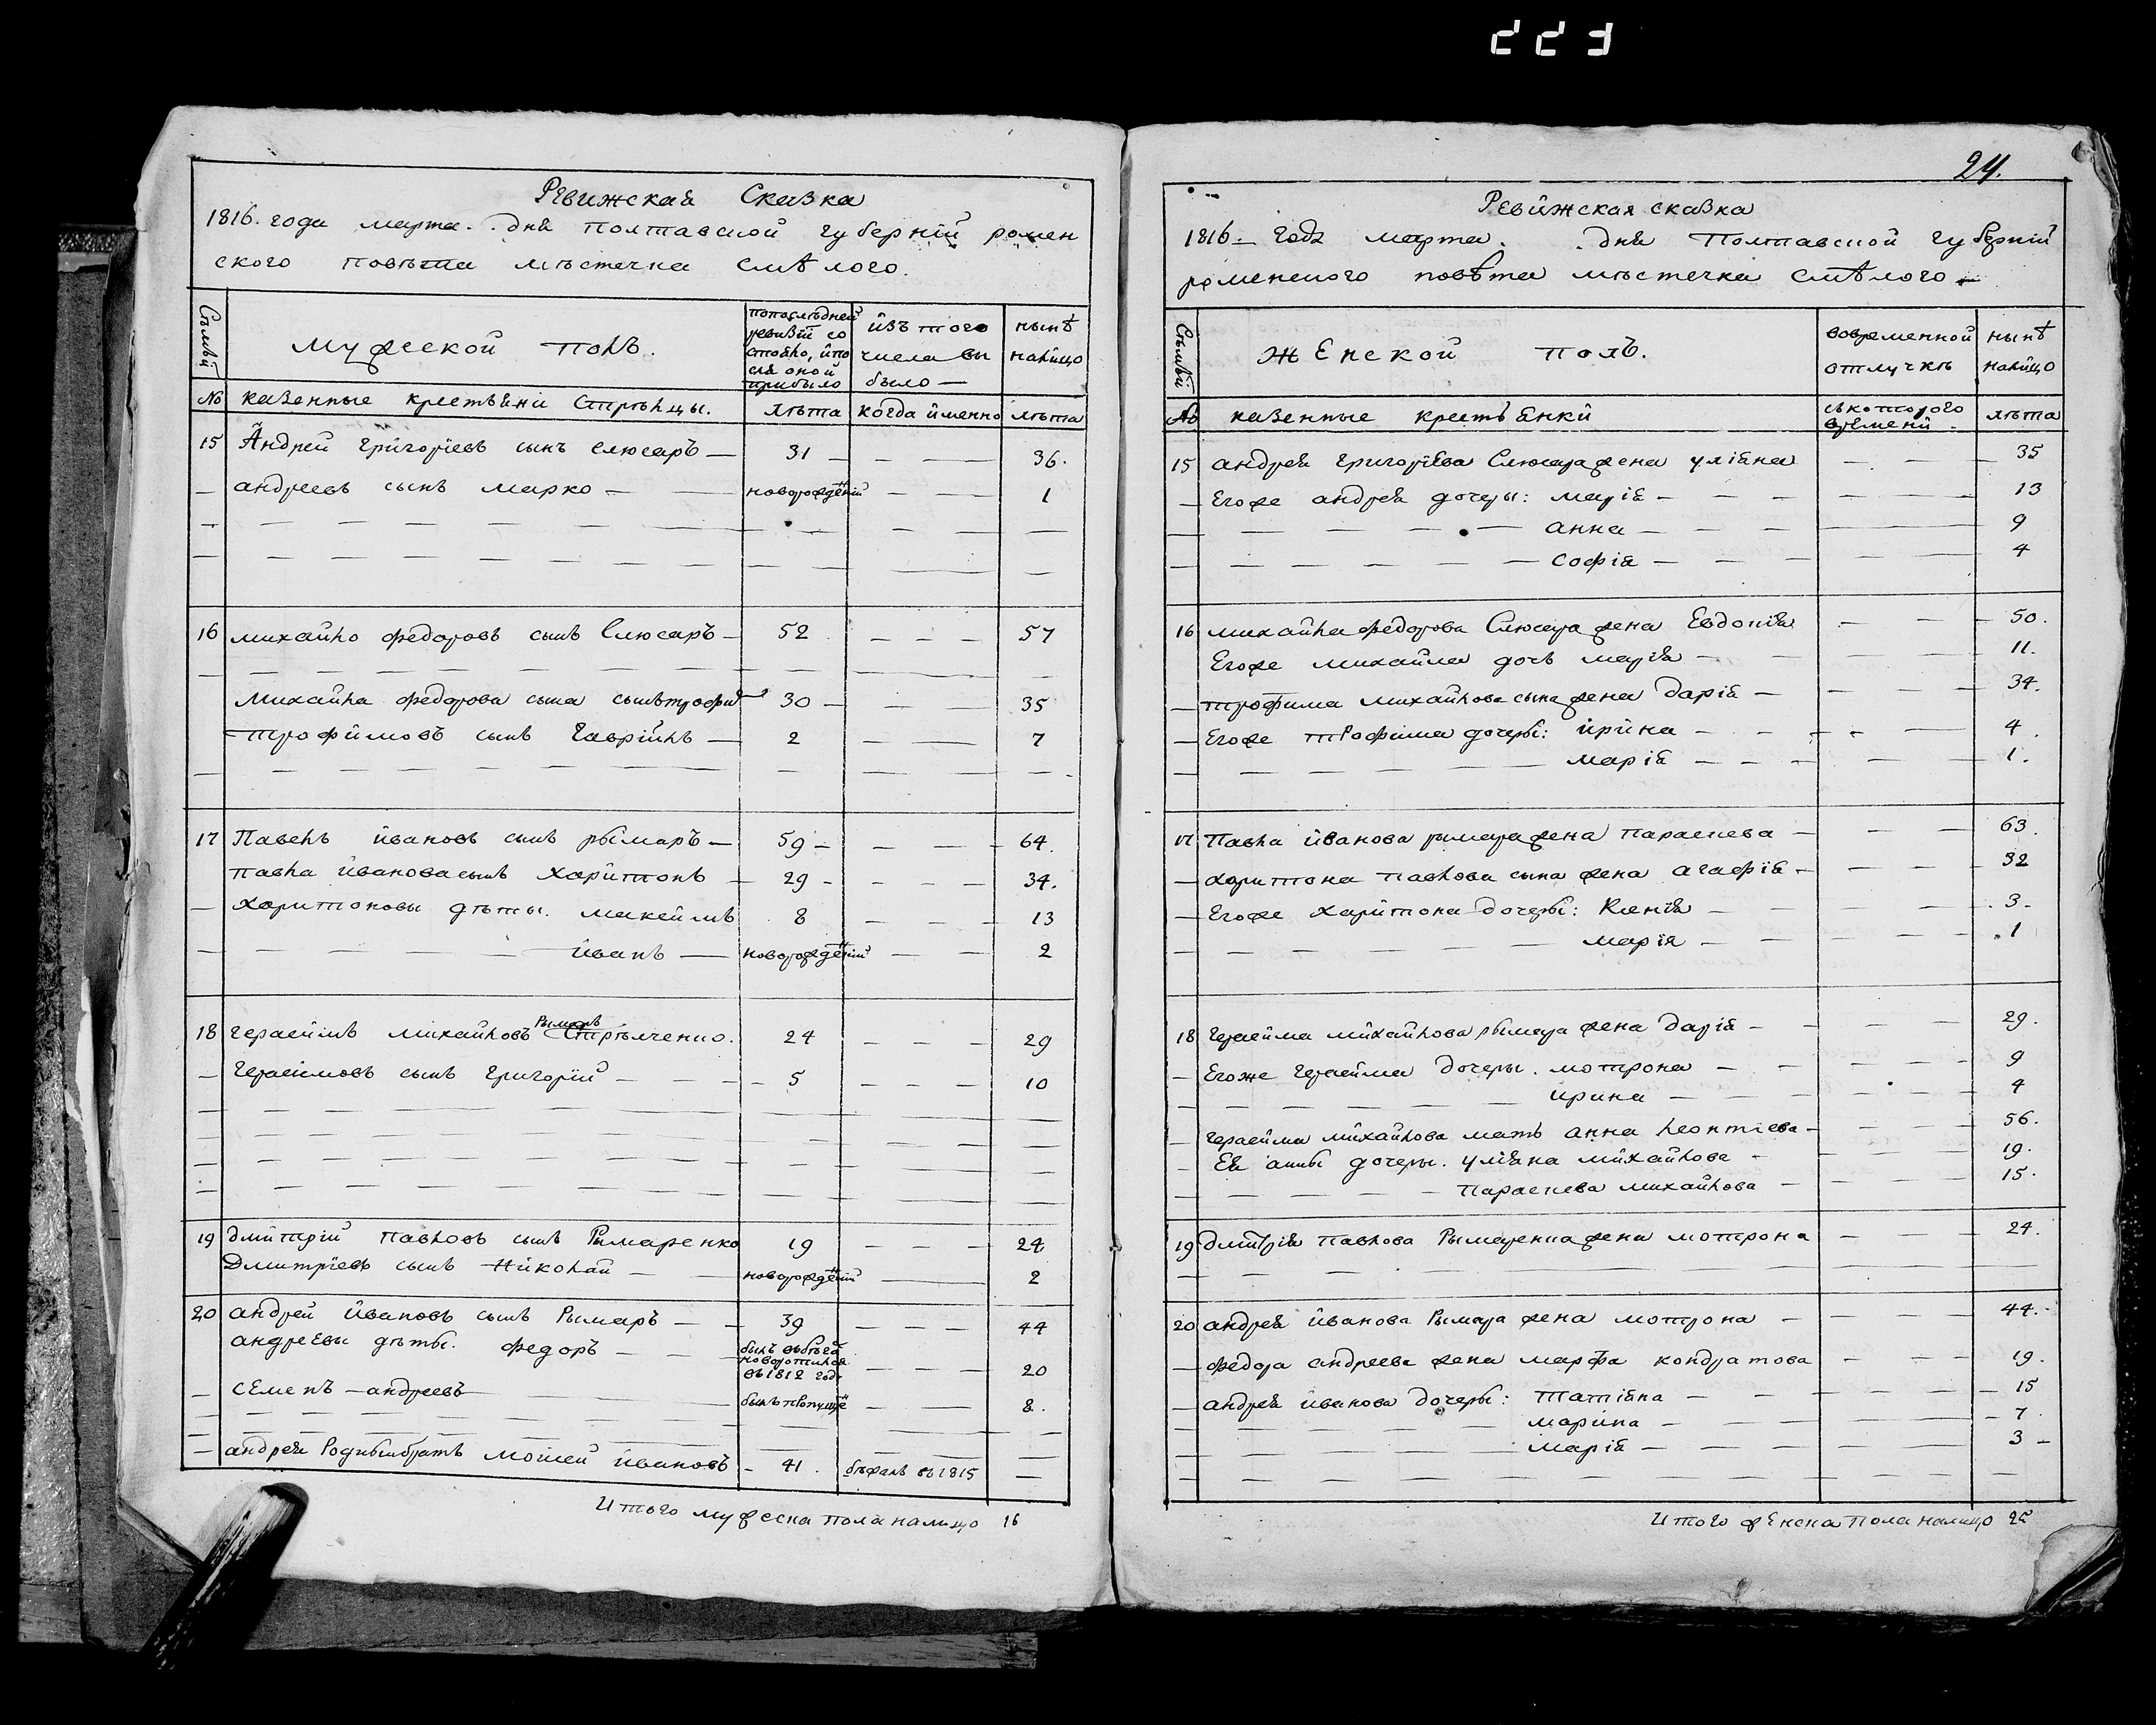 223
24.
Ревижская Сказка
1816. года марта. . дня Полтавской губерній ромен
ского повѣта мѣстечка Смѣлого.
Сѣмьи
мужеской полъ.
попослѣдней ревизій со стояло, ипо слѣ оной прибыло
изъ того числа вы было —
нынѣ налицо
№ казенные крестьяни Стрѣлцы.
лѣта
когда именно
лѣта
15 Андрей григоріевъ сынъ слюсаръ — 31 — — — 36.
— андреевъ сынъ марко — новорождений — — 1
16 михайло федоровъ сынъ Слюсаръ — 52 — — — 57
михайла федорова сына сынъ трофим 30 — — — 35
трофимовъ сынъ Гаврійлъ — 2 — — 7
17 Павелъ ивановъ сынъ рымаръ — 59 — — — 64.
павла иванова сынъ харитонъ — 29 — — — 34.
— харитоновы дѣты. макеймъ 8 — — 13
— — — — иванъ — новорождений — — 2
18 герасимъ михайловъ Рымаръ Стрѣлченко. 24 — — — 29
— герасимовъ сынъ григорій — — — 5 — — — 10
19 дмитрій павловъ сынъ Рымаренко 19 — — — 24
Дмитріевъ сынъ Николай — новорождений — 2
20 андрей ивановъ сынъ Рымаръ — — 39 — — — 44
андреевы дѣты. федоръ — — былъ вбѣгах новоротился въ 1812 год — — — 20
— семенъ — андреевъ — былъ пропущен — — 8.
— андрея родный братъ мойсей ивановъ — 41. бѣжалъ въ 1815 —
Итого мужеска пола налицо 16
Ревижская сказка
1816. — года марта. . дня Полтавской губерній
роменского повѣта мѣстечка Смѣлого —
Сѣмьи
женской полъ.
вовременной отлучкѣ
нынѣ налицо
№ казенные крестьянки
съкоторого времени —
лѣта
15 андрея григоріева Слюсара жена уліяна — — 35
— Егоже андрея дочеры: марія — — — — 13
— — — — анна — — — 9
— — — — — софія — — — 4
16 михайла федорова Слюсара жена Евдокія — — — 50.
Егоже михайла дочь марія — — — — 11.
— трофима михайлова сына жена дарія — — — — 34.
— Егоже трофима дочеры: ирина — — — — 4.
— — — — — марія — — — — 1.
17 Павла иванова рымара жена параскева — — — 63.
— харитона павлова сына жена агафія — — — 32
— Егоже харитона дочеры: Ксенія — — — — 3.
— — — — — марія — — — — 1
18 герасима михайлова рымара жена дарія — — — — 29.
— Егоже герасима дочеры. мотрона — — — — 9
— — — — — ирина — — — — 4
— герасима михайлова мать анна леонтіева — — — 56.
— Ея анны дочеры. уліяна михайлова — — — 19.
— — — — параскева михайлова — — — 15.
19 дмитрія павлова Рымаренка жена мотрона — — — 24.
20 андрея иванова Рымара жена мотрона — — — 44.
— федора андреева жена марфа кондратова — — — 19.
— андрея иванова дочеры: татіяна — — — — 15
— — — — марина — — — 7.
— — — — марія — — — 3 —
Итого женска пола налицо 25